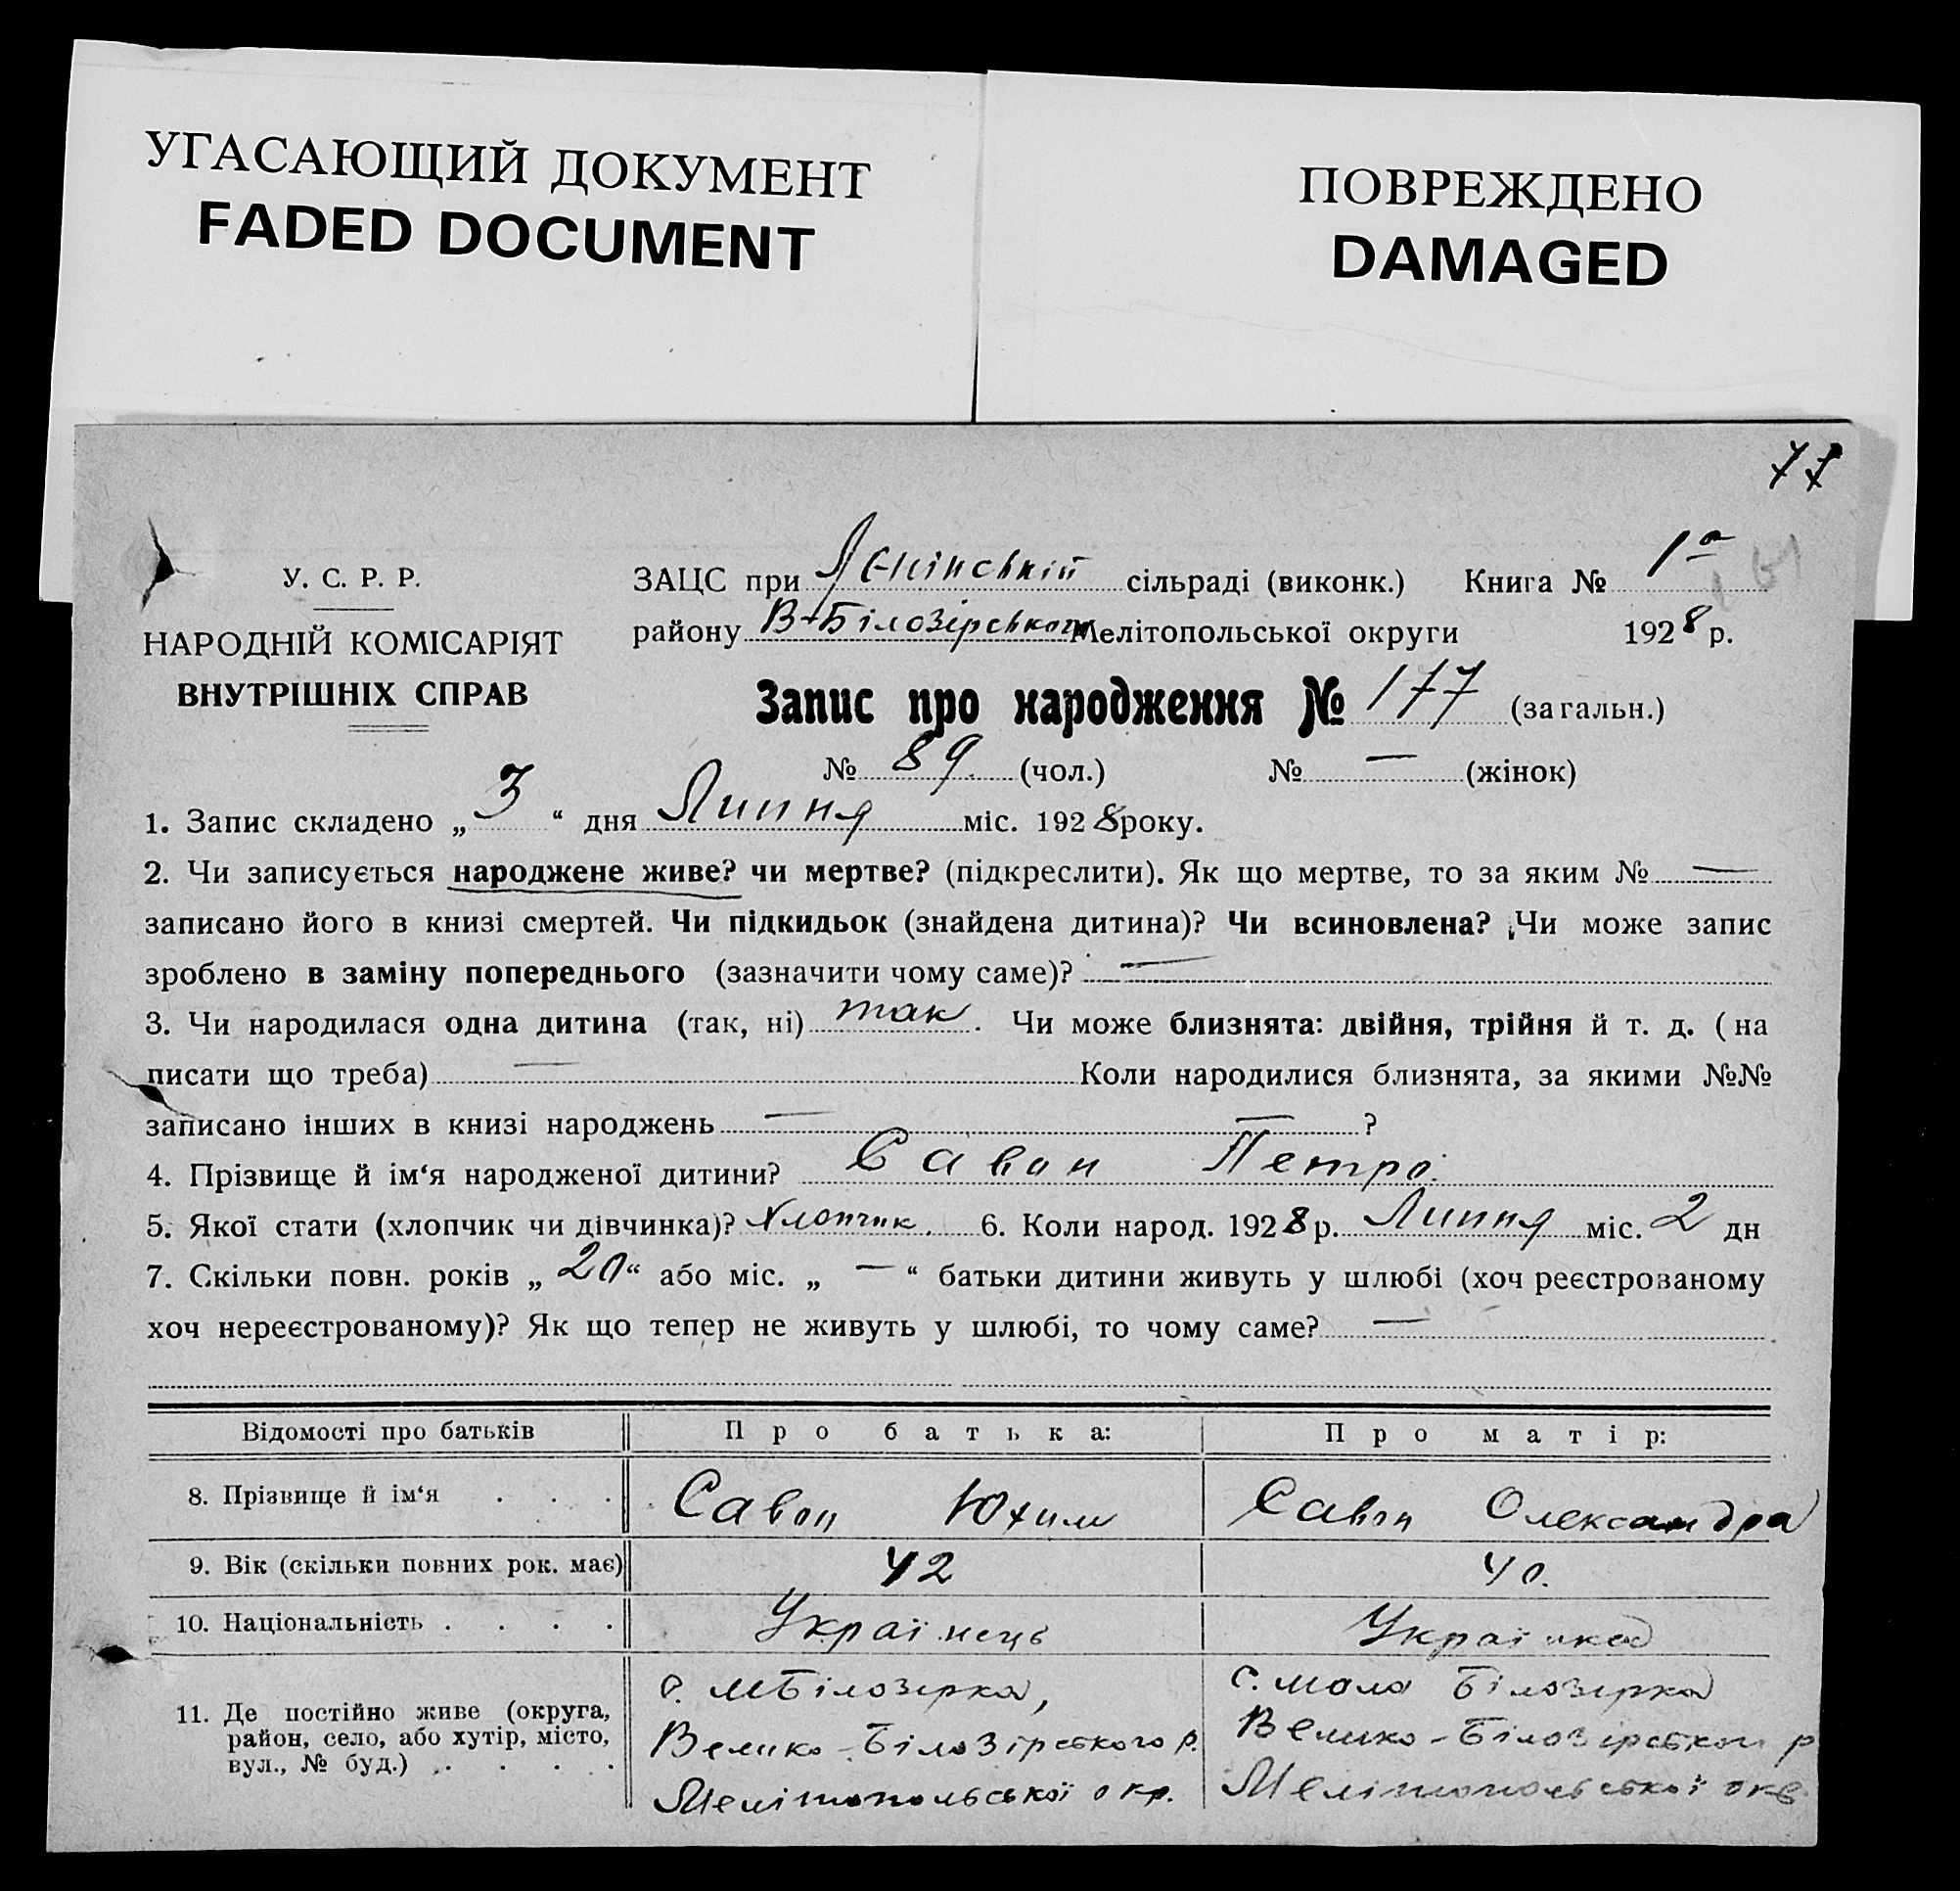 УГАСАЮЩИЙ ДОКУМЕНТ
FADED DOCUMENT
ПОВРЕЖДЕНО
DAMAGED
77
У. С. Р. Р.
НАРОДНІЙ КОМІСАРІЯТ
ВНУТРІШНІХ СПРАВ
ЗАЦС при Ленінській сільраді (виконк.) Книга № 1а
району В-Білозірського Мелітопольської округи 1928 р.
Запис про народження № 177 (загальн.)
№ 89 (чол.) № — (жінок)
1. Запис складено „3“ дня Липня міс. 1928 року.
2. Чи записується народжене живе? чи мертве? (підкреслити). Як що мертве, то за яким № —
записано його в книзі смертей. Чи підкидьок (знайдена дитина)? Чи всиновлена? Чи може запис
зроблено в заміну попереднього (зазначити чому саме)? —
3. Чи народилася одна дитина (так, ні) так. Чи може близнята: двійня, трійня й т. д. (на
писати що треба) — Коли народилися близнята, за якими №№
записано інших в книзі народжень — — ?
4. Прізвище й ім‘я народженої дитини? Савон Петро.
5. Якої стати (хлопчик чи дівчинка)? Хлопчик. 6. Коли народ. 1928 р. Липня міс. 2 дн
7. Скільки повн. років „20“ або міс. „—“ батьки дитини живуть у шлюбі (хоч реєстрованому
хоч нереєстрованому)? Як що тепер не живуть у шлюбі, то чому саме? —
Відомості про батьків Про батька: Про матір:
8. Прізвище й ім‘я . . . Савон Юхим Савон Олександра
9. Вік (скільки повних рок. має) 42 40.
10. Національність . . . . Українець Українка
11. Де постійно живе (округа,
район, село, або хутір, місто,
вул., № буд.) . . . .
с. МБілозірка,
Велико-Білозірського р.
Мелітопольської окр.
с. Мала Білозірка
Велико-Білозірського р
Мелітопольської окр